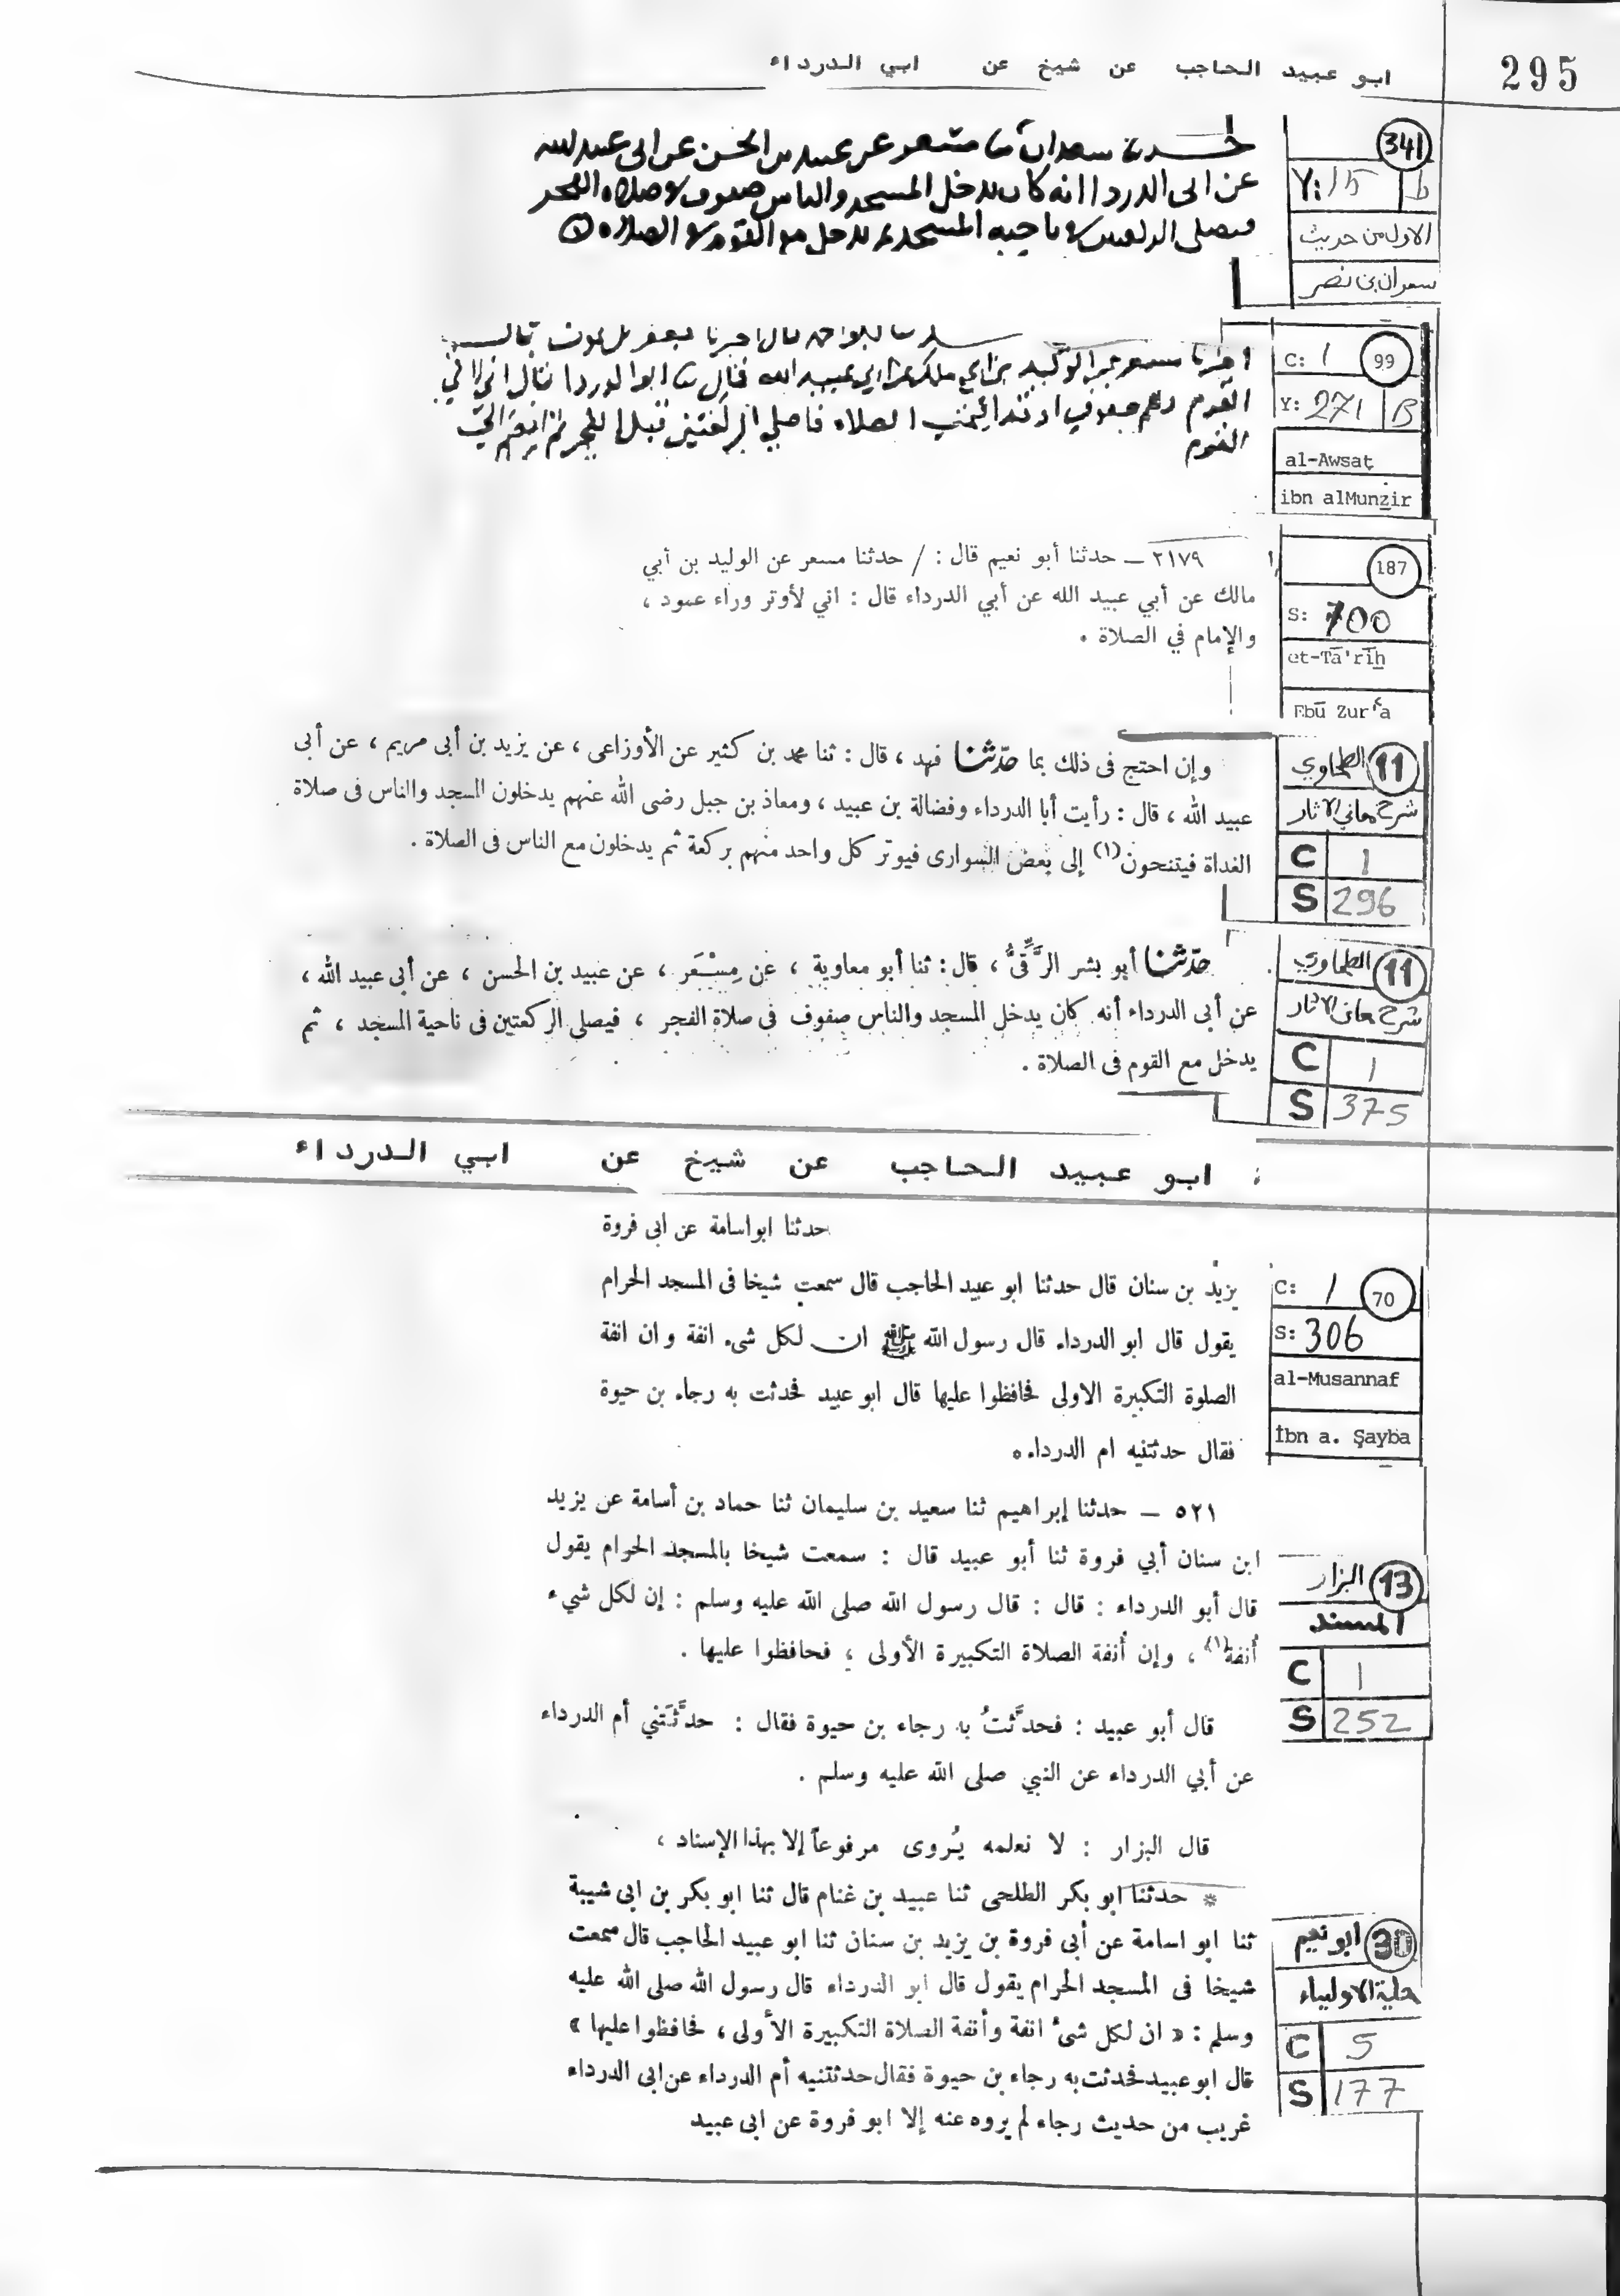 295
ابو عبيد الحاجب عن شيخ عن ابي الدرداء
341
Y: 15 b
الاول من حديث
سعدان بن نصر
حدثنا سعدان ثنا مسعر عن عبيد بن الحسن عن ابى عبيد الله
عن ابى الدرداء انه كان يدخل المسجد والناس صفوف فى صلاه الفجر
فيصلى الركعتين فى ناحيه المسجد ثم يدخل مع القوم فى الصلاه
99
C: 1
Y: 271 B
al-Awsaṭ
ibn alMunẕir
قال اخبرنا جعفر بن عون قال
اخبرنا مسعر عن الوليد بن ابي ملك عن ابي عبيد الله قال ثنا ابو الدرداء قال اني لاتي
القوم وهم صفوف في الصلاه فاصلي الركعتين قبل الفجر ثم انضم الى
القوم
187
S: 700
et-Tā'rīẖ
Ebū Zurʿa
٢١٧٩ – حدثنا أبو نعيم قال : / حدثنا مسعر عن الوليد بن أبي
مالك عن أبي عبيد الله عن أبي الدرداء قال : اني لأوتر وراء عمود ،
والإمام في الصلاة .
11 الطحاوي
شرح معاني الاثار
C 1
S 296
وإن احتج فى ذلك بما حدثنا فهد ، قال : ثنا محمد بن كثير عن الأوزاعى ، عن يزيد بن أبى مريم ، عن أبى
عبيد الله ، قال : رأيت أبا الدرداء وفضالة بن عبيد ، ومعاذ بن جبل رضى الله عنهم يدخلون المسجد والناس فى صلاة
الغداة فيتنحون(١) إلى بعض السوارى فيوتر كل واحد منهم بركعة ثم يدخلون مع الناس فى الصلاة .
11 الطحاوي
شرح معاني الاثار
C 1
S 375
حدثنا أبو بشر الرَّقِّىُّ ، قال : ثنا أبو معاوية ، عن مِسْعَر ، عن عبيد بن الحسن ، عن أبى عبيد الله ،
عن أبى الدرداء أنه كان يدخل المسجد والناس صفوف فى صلاة الفجر ، فيصلى الركعتين فى ناحية المسجد ، ثم
يدخل مع القوم فى الصلاة .
ابو عبيد الحاجب عن شيخ عن ابي الدرداء :
حدثنا ابو اسامة عن ابى فروة
70
C: 1
S: 306
al-Musannaf
İbn a. Şayba
يزيد بن سنان قال حدثنا ابو عبيد الحاجب قال سمعت شيخا فى المسجد الحرام
يقول قال ابو الدرداء قال رسول الله ﷺ ان لكل شىء انفة وان انفة
الصلوة التكبيرة الاولى فحافظوا عليها قال ابو عبيد فحدثت به رجاء بن حيوة
فقال حدثتنيه ام الدرداء ه
٥٢١ – حدثنا إبراهيم ثنا سعيد بن سليمان ثنا حماد بن أسامة عن يزيد
ابن سنان أبي فروة ثنا أبو عبيد قال : سمعت شيخا بالمسجد الحرام يقول
قال أبو الدرداء : قال : قال رسول الله صلى الله عليه وسلم : إن لكل شيء
أُنفة(١) ، وإن أُنفة الصلاة التكبيرة الأولى ؛ فحافظوا عليها .
13 البزار
المسند
C 1
S 252
قال أبو عبيد : فحدَّثتُ به رجاء بن حيوة فقال : حدَّثَتني أم الدرداء
عن أبي الدرداء عن النبي صلى الله عليه وسلم .
قال البزار : لا نعلمه يُروى مرفوعاً إلا بهذا الإسناد ،
30 ابو نعيم
حلية الاولياء
C 5
S 177
* حدثنا ابو بكر الطلحى ثنا عبيد بن غنام قال ثنا ابو بكر بن ابى شيبة
ثنا ابو اسامة عن أبى فروة بن يزيد بن سنان ثنا ابو عبيد الحاجب قال سمعت
شيخا فى المسجد الحرام يقول قال ابو الدرداء قال رسول الله صلى الله عليه
وسلم : « ان لكل شىء انفة وأنفة الصلاة التكبيرة الأولى ، فحافظوا عليها »
قال ابو عبيد فحدثت به رجاء بن حيوة فقال حدثتنيه أم الدرداء عن ابى الدرداء
غريب من حديث رجاء لم يروه عنه إلا ابو فروة عن ابى عبيد